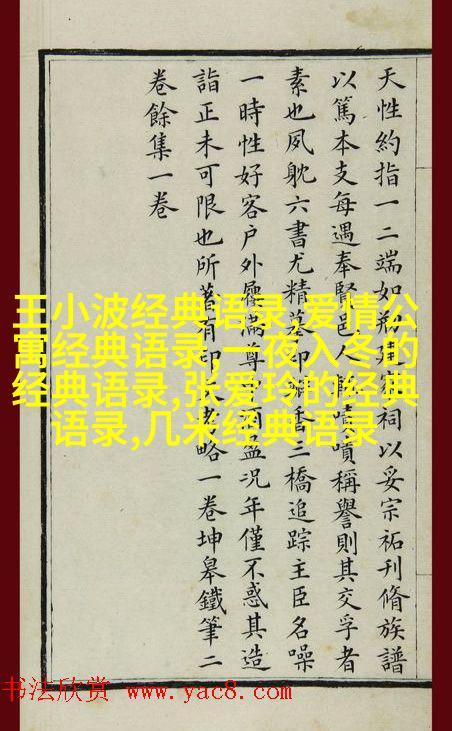 天性約指一二端如建祠以妥宗祏刊脩族譜
以篤本支每遇奉賢邑人嘖嘖稱譽則其交孚者
素也夙躭六書尤精摹印香三橋追踪主臣名噪
一時性好客戶外屨滿尊酒盈況年僅不惑其造
詣正未可限也所著有印略一卷坤皋鐵筆二
卷餘集一卷
王小波经典语录,爱情公
寓经典语录,一夜入冬的
经典语录,张爱玲的经典
语录,几米经典语录
书法欣赏 www.yac8.com